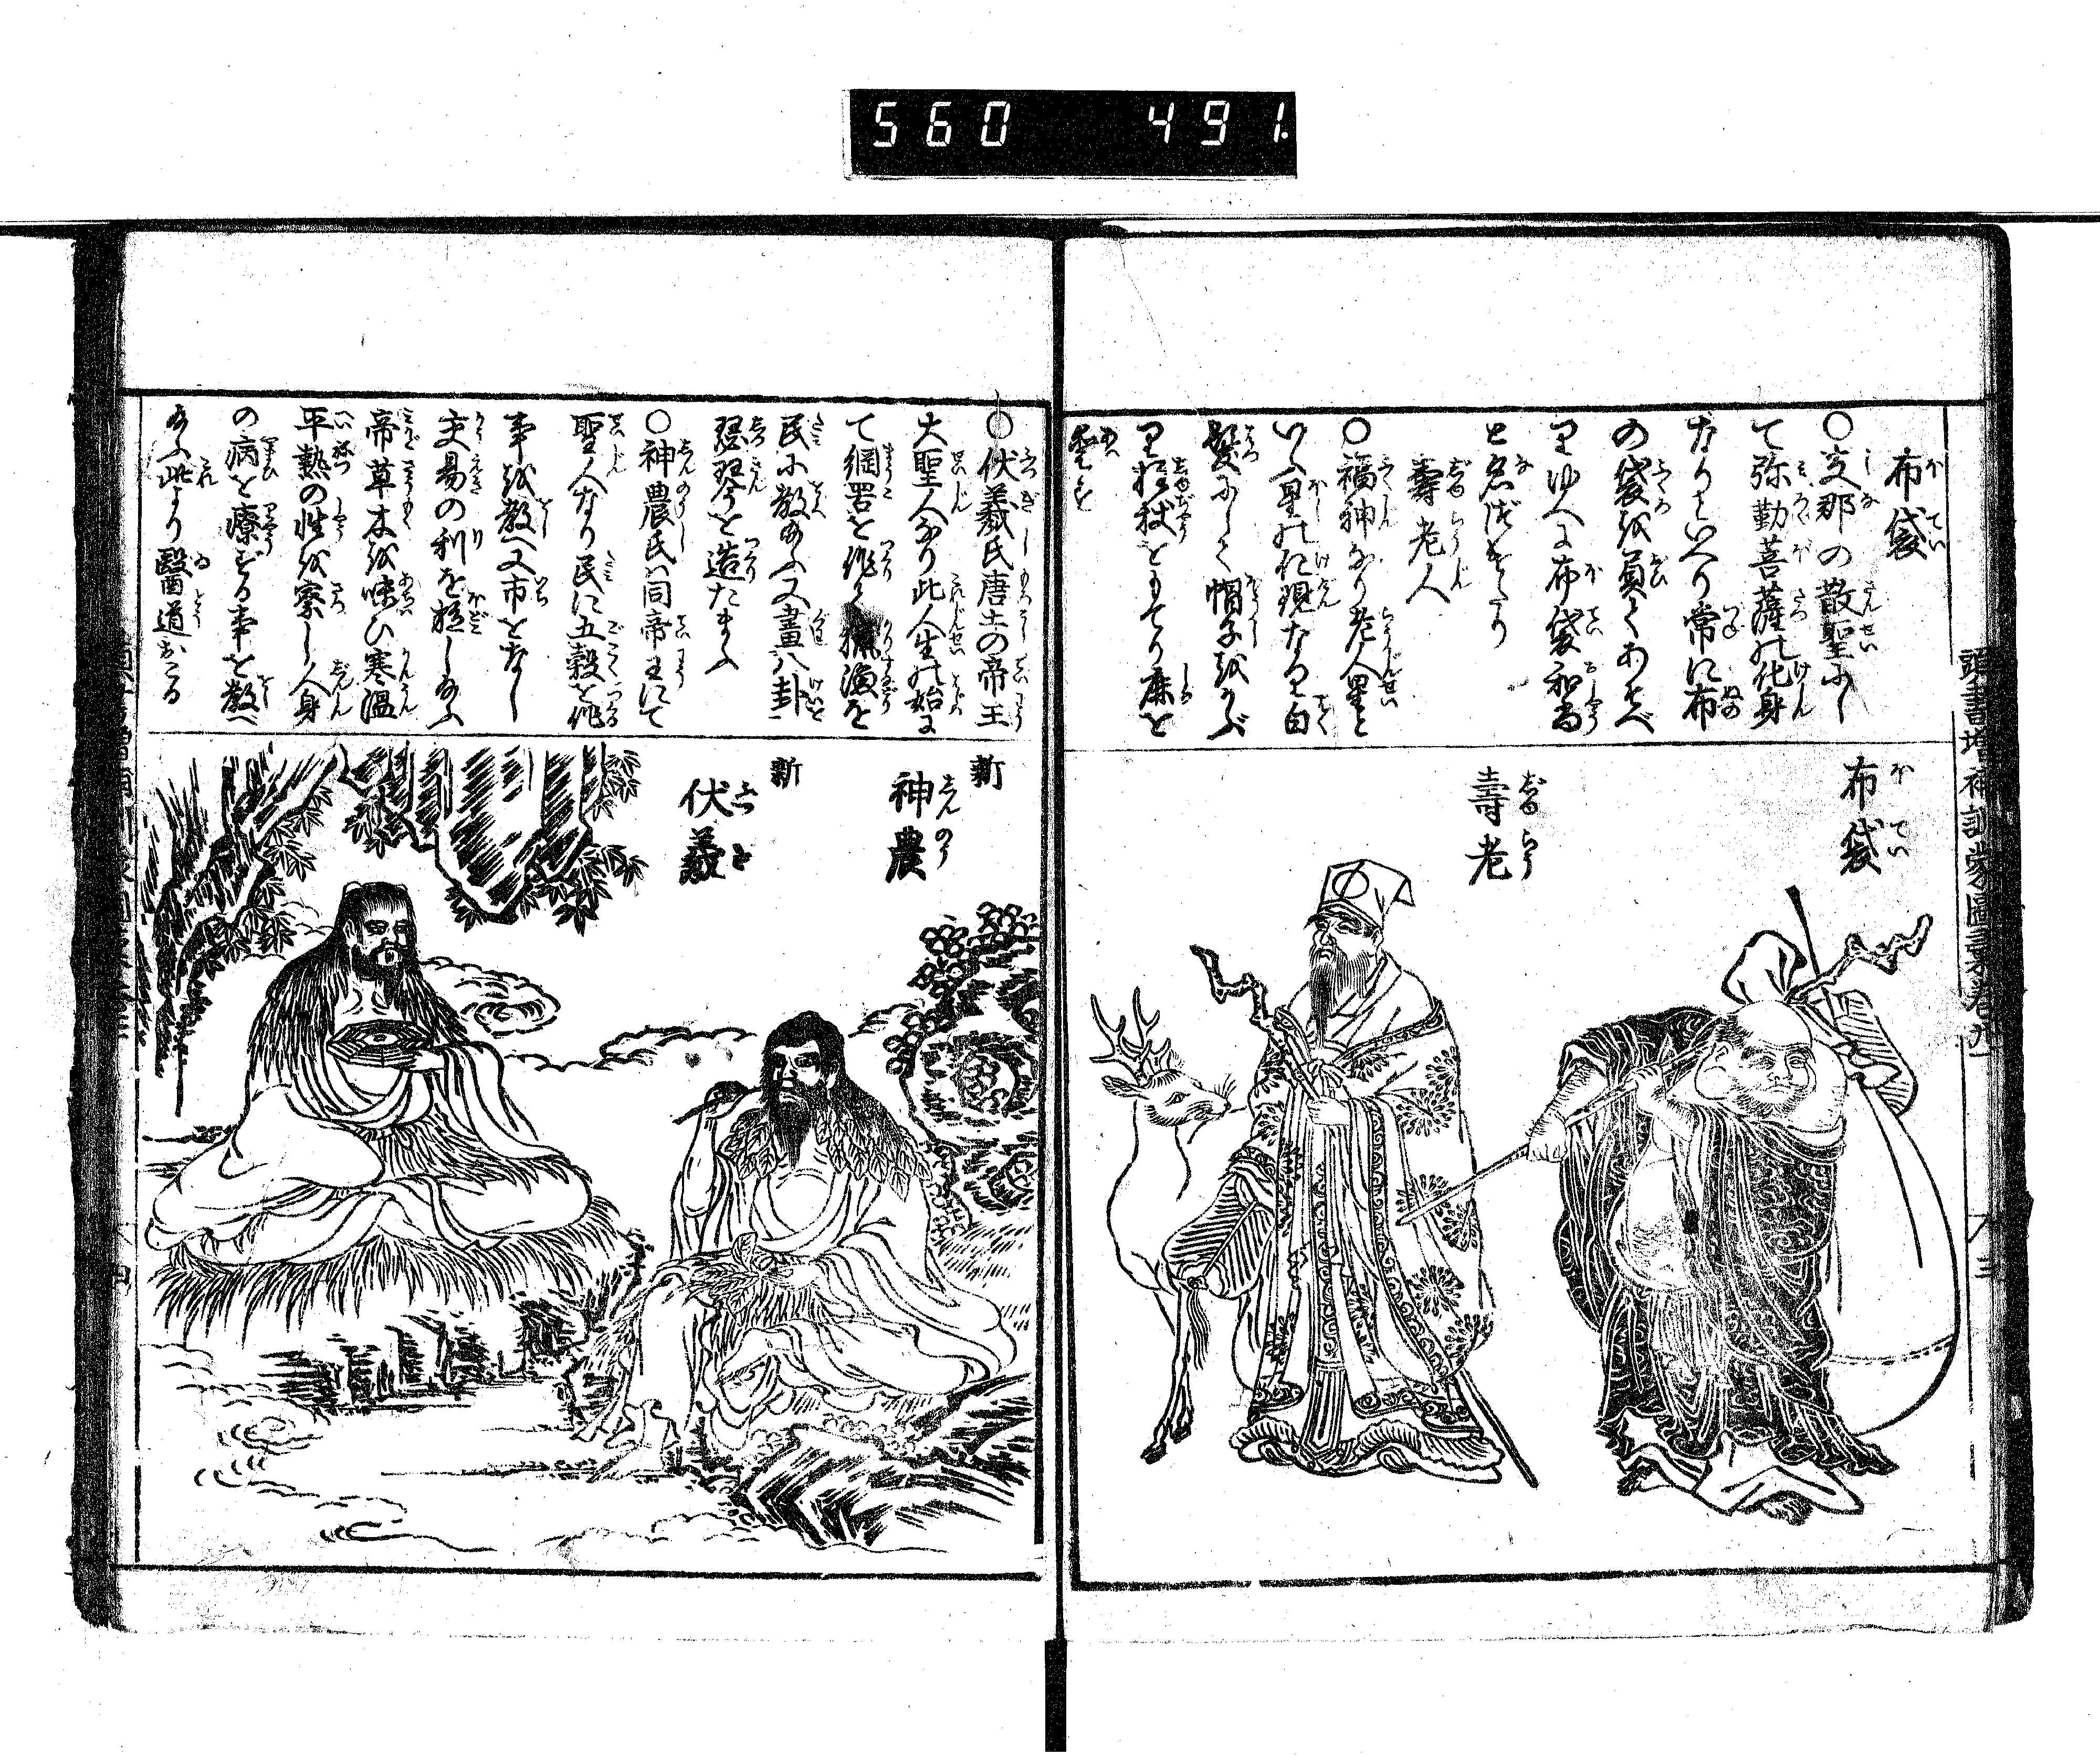 560 491.
布袋
〇支那の散聖にし
て弥勒菩薩の化身
なりといへり常に布
の袋を負てあそべ
りゆへに布袋和尚
と名づけたり
壽老人
〇福神なり老人星と
いへる星の化現なり白
髪にして帽子をかぶ
り杖をもてり鹿を
愛す
布袋
壽老
頭書増補訓蒙圖彙巻九
三
〇伏羲氏唐土の帝王
大聖人なり此人生の始に
て網罟を作て猟漁を
民に教給ふ又畫八卦
瑟琴を造たまふ
〇神農氏は同帝王にて
聖人なり民に五穀を作
事を教へ又市をなし
交易の利を施し給ふ
帝草木を味ひ寒温
平熱の性を察し人身
の病を療ずる事を教へ
給ふ此より醫道おこる
新
神農
新
伏羲